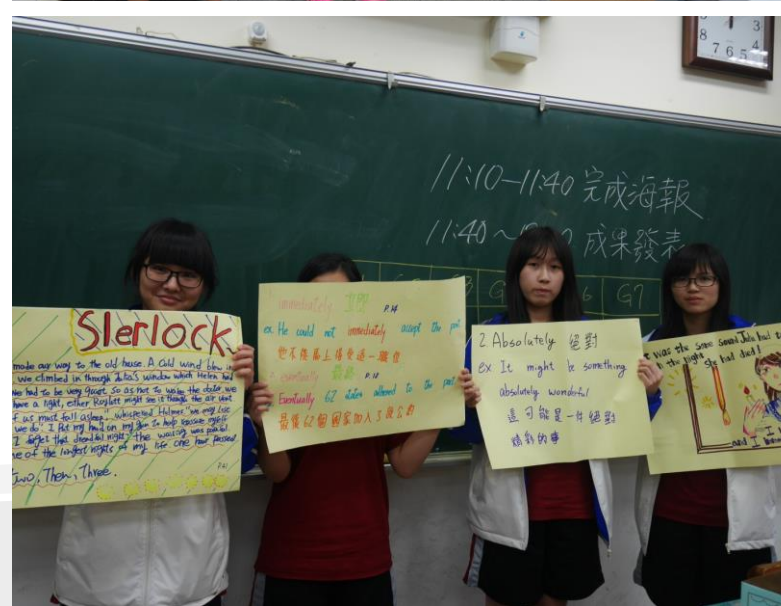 8
3
7 6 5
11:10-11:40 完成海報
11:40~ 成果發表
G7
Slerlock
made our way to the old house. A cold wind blew
we climbed in through Julia's window which Helen had
We had to be very quiet so as not to wake the
have a light, either Roylott might see it through the air vent.
f us must fall asleep," whispered Holmes
we do". I put my hand on my gun
I forget that dreadful night, the waiting was
one of the longest nights of my life. One hour passed.
Two, Then, Three.
P.61
immediately 立即 P.14
ex He would not immediately accept the post
他不能馬上接受這一職位
2. eventually 最終 P.18
Eventually 62 states adhered to the pact
最後62個國家加入了該公約
2 Absolutely 絕對
ex It might be something
absolutely wonderful
這可能是一件絕對
精彩的事
t was the same sound Julia had
the night she had died!
and I